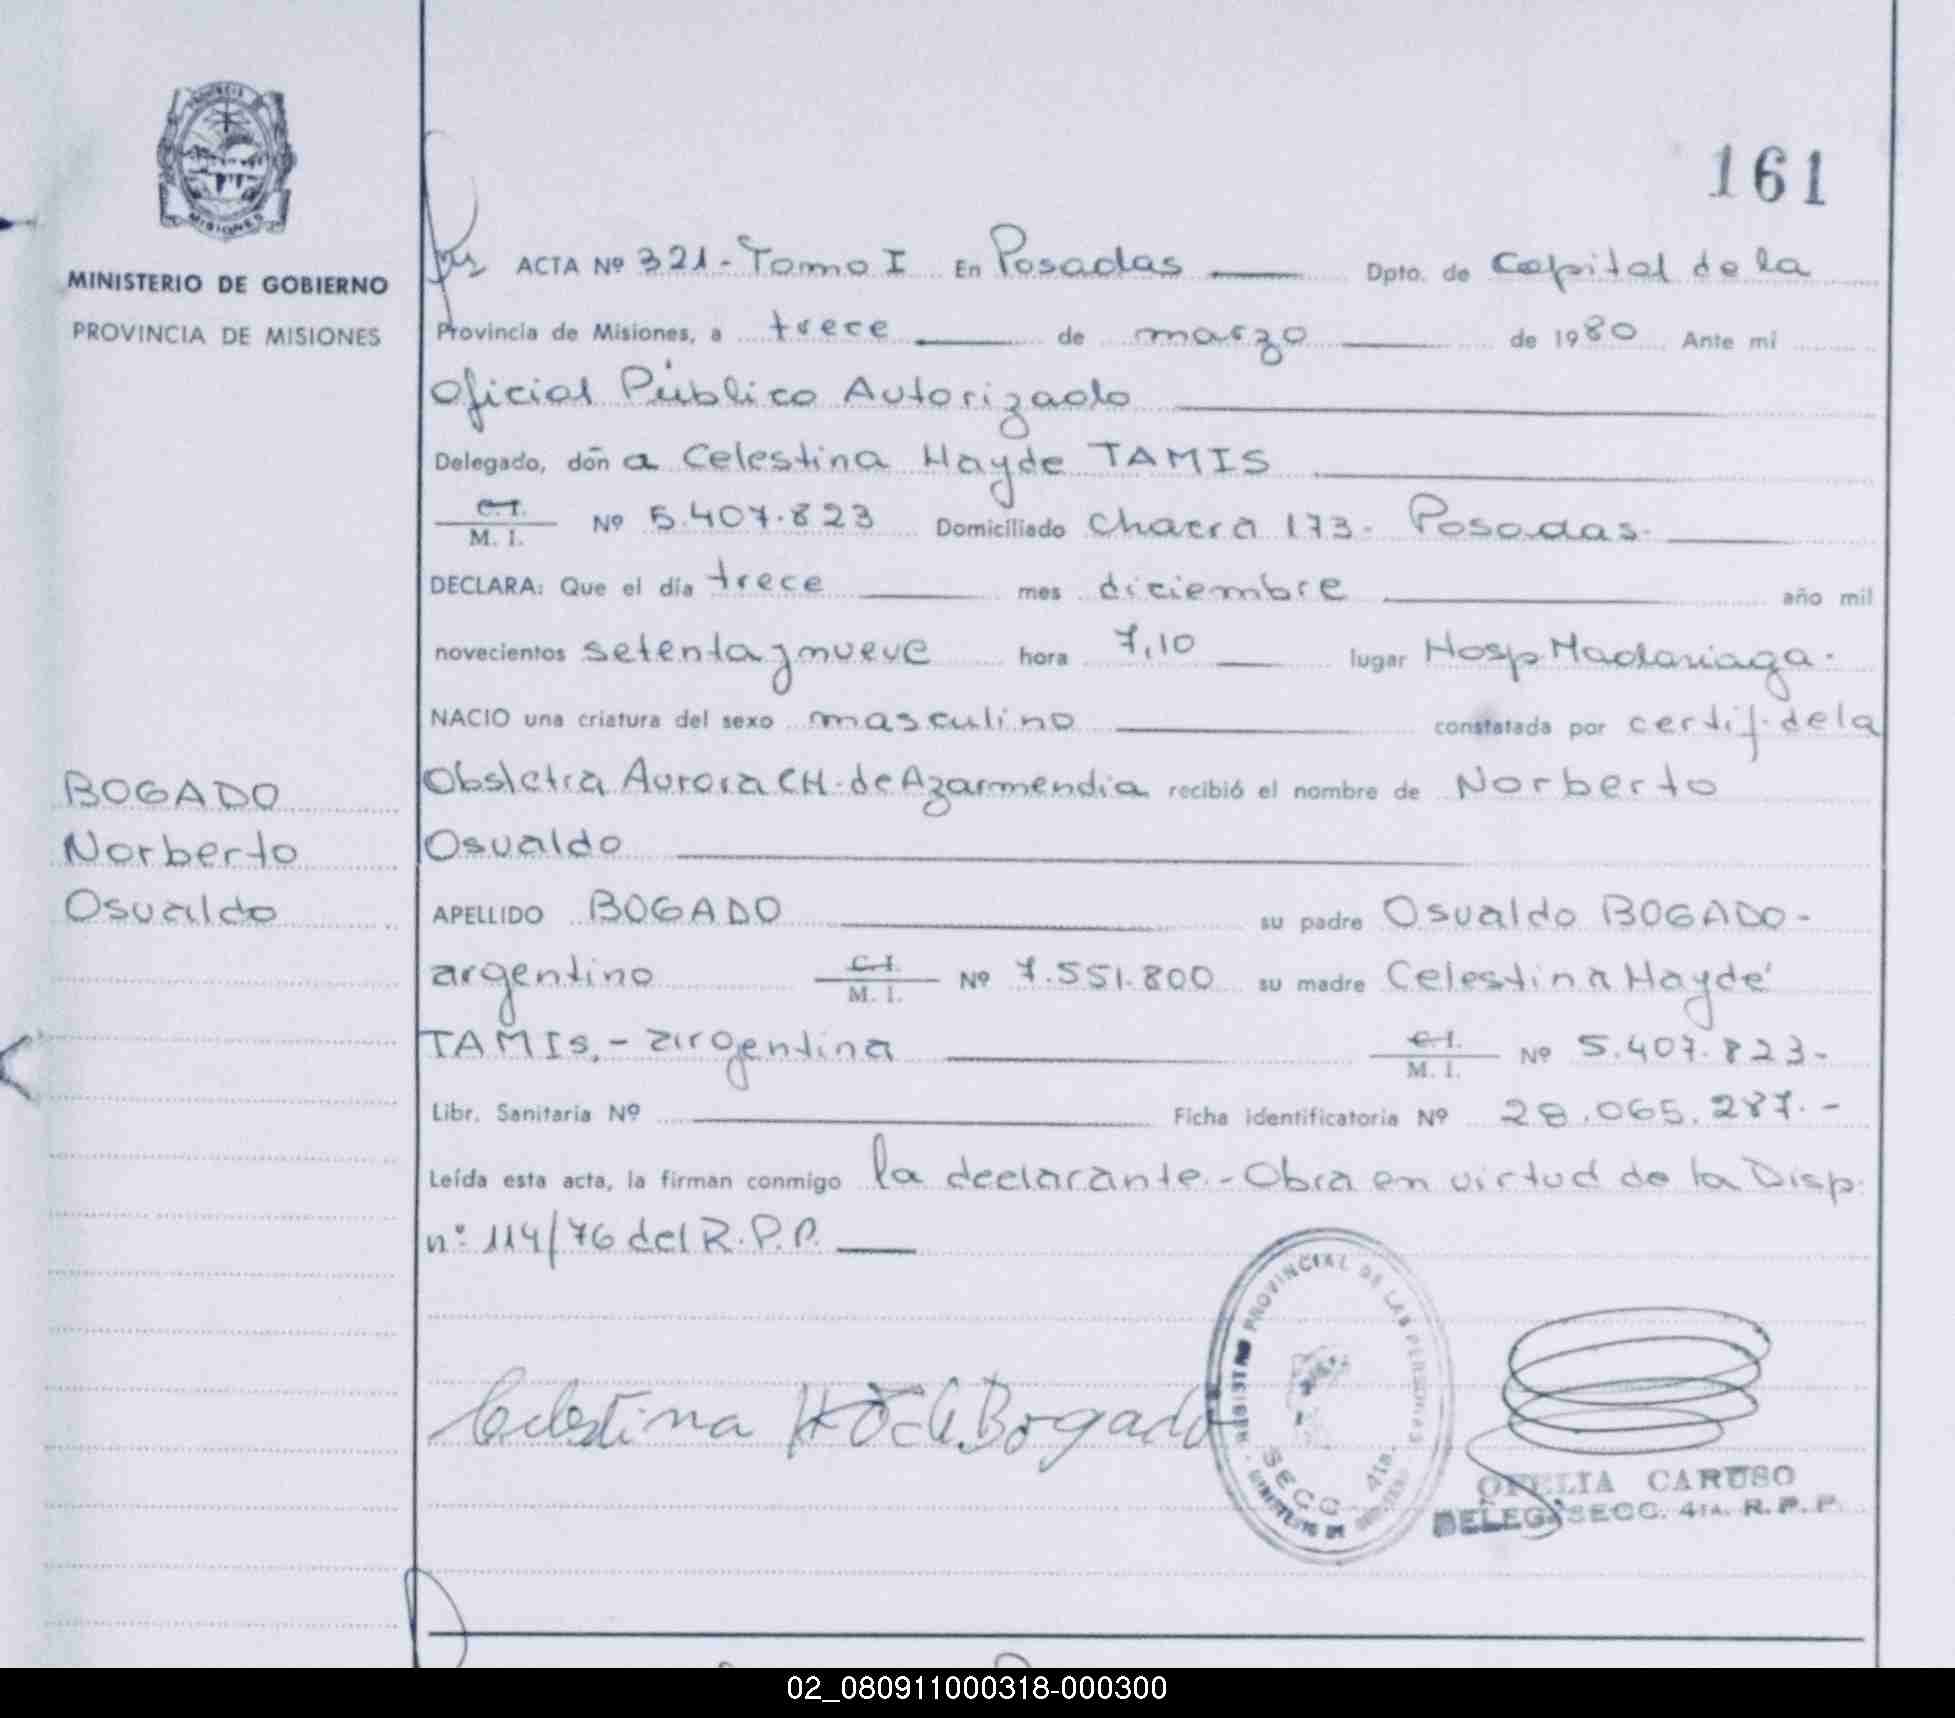 161
PROVINCIA
MISIONES
MINISTERIO DE GOBIERNO
PROVINCIA DE MISIONES
ACTA Nº 321 - Tomo I En Posadas Dpto. de Capital de la
Provincia de Misiones, a trece de marzo de 1980 Ante mi
Oficial Público Autorizado
Delegado, don a Celestina Hayde TAMIS
C.I.
M. I. Nº 5.407.823 Domiciliado Chacra 173 - Posadas -
DECLARA: Que el día trece mes diciembre año mil
novecientos setenta y nueve hora 7,10 lugar Hosp Madariaga.
NACIO una criatura del sexo masculino constatada por certif. de la
Obstetra Aurora CH. de Azarmendia recibió el nombre de Norberto
Osvaldo
BOGADO
Norberto
Osvaldo
APELLIDO BOGADO su padre Osvaldo BOGADO -
argentino C.I. M. I. Nº 7.551.800 su madre Celestina Haydé
TAMIS, - argentina C.I. M. I. Nº 5.407.823 -
Libr. Sanitaria Nº Ficha identificatoria Nº 28.065.287. -
Leída esta acta, la firman conmigo la declarante. - Obra en virtud de la Disp.
nº 114/76 del R.P.P.
REGISTRO PROVINCIAL DE LAS PERSONAS
SECC. 4ta.
Celestina H de Bogado
OFELIA CARUSO
DELEG. SECC. 4TA. R. P. P.
02_080911000318-000300